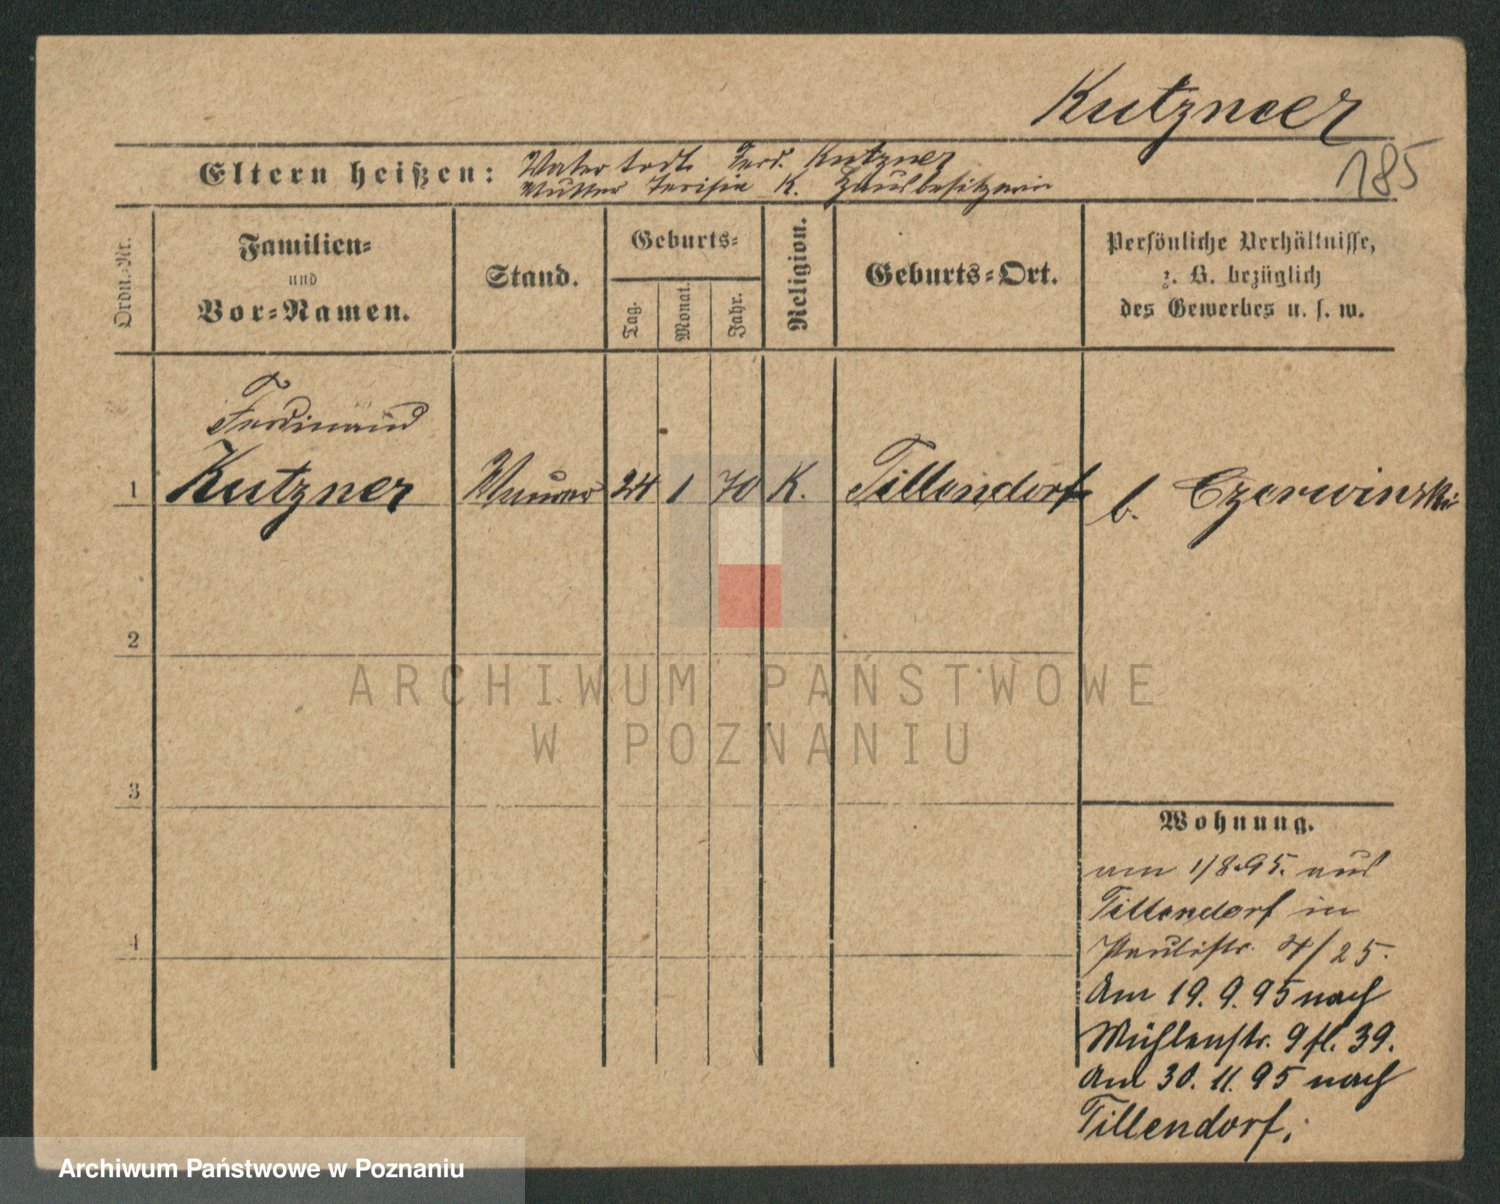 Kutzner
185
Eltern heißen: Vater todt Ferd. Kutzner
Mutter K. Hausbesitzerin
Ordn.-Nr.
Familien-
und
Vor-Namen.
Stand.
Geburts-
Tag.
Monat.
Jahr.
Religion.
Geburts-Ort.
Persönliche Verhältnisse,
z. B. bezüglich
des Gewerbes u. s. w.
Ferdinand
1 Kutzner Maurer 24 1 70 K. Tillendorf b. Czerwinski
2
3
4
ARCHIWUM PAŃSTWOWE
W POZNANIU
Wohnung.
am 1/8.95. aus
Tillendorf in
Paulistr. 4/25.
Am 19. 9. 95 nach
Mühlenstr. 9 39.
Am 30. 11. 95 nach
Tillendorf.
Archiwum Państwowe w Poznaniu